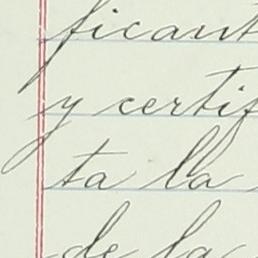 ficant
y certif
ta la
de la